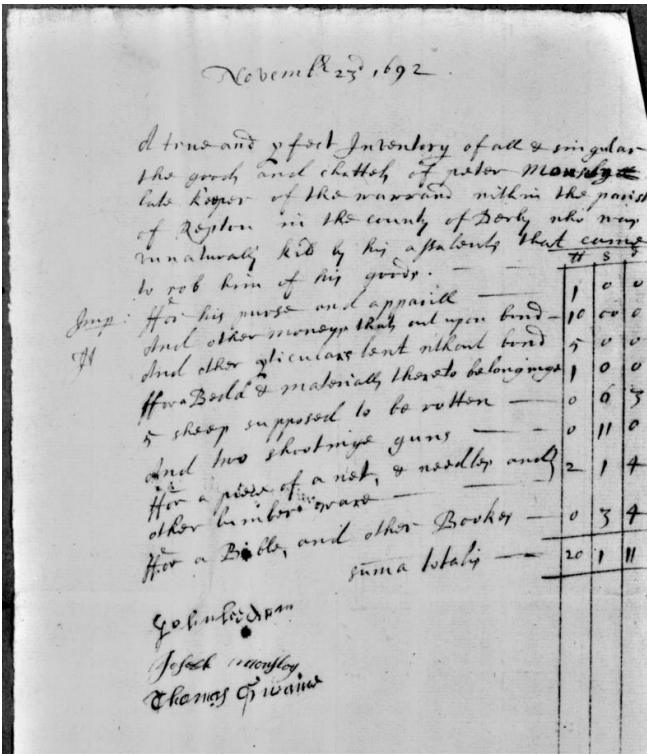 Novemb 23d 1692
A true and pfect Inventory of all & singular
the goods and chattels of peter Mousley
late keeper of the warrand within the parish
of Repton in the county of Derby who was
unnaturally kild by his assalents that came
to rob him of his goods. — li s d
Imp: ffor his purse and apparill — 1 0 0
It And other moneys that out upon bond — 10 00 0
And other pticulars lent without bond 5 0 0
ffor a Bedd & materialls thereto belonginge 1 0 0
5 sheep supposed to be rotten — 0 6 3
And two shootinge guns — — 0 11 0
ffor a piece of a net, & needles and } 2 1 4
other lumber ware —
ffor a Bible, and other Bookes — 0 3 4
suma totalis — 20 1 11
John
Joseph Mousley
Thomas Gwaine